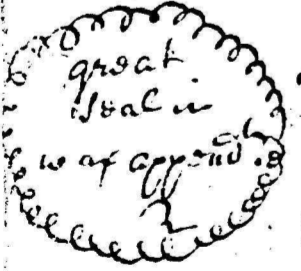 great
seal in
wax append.d